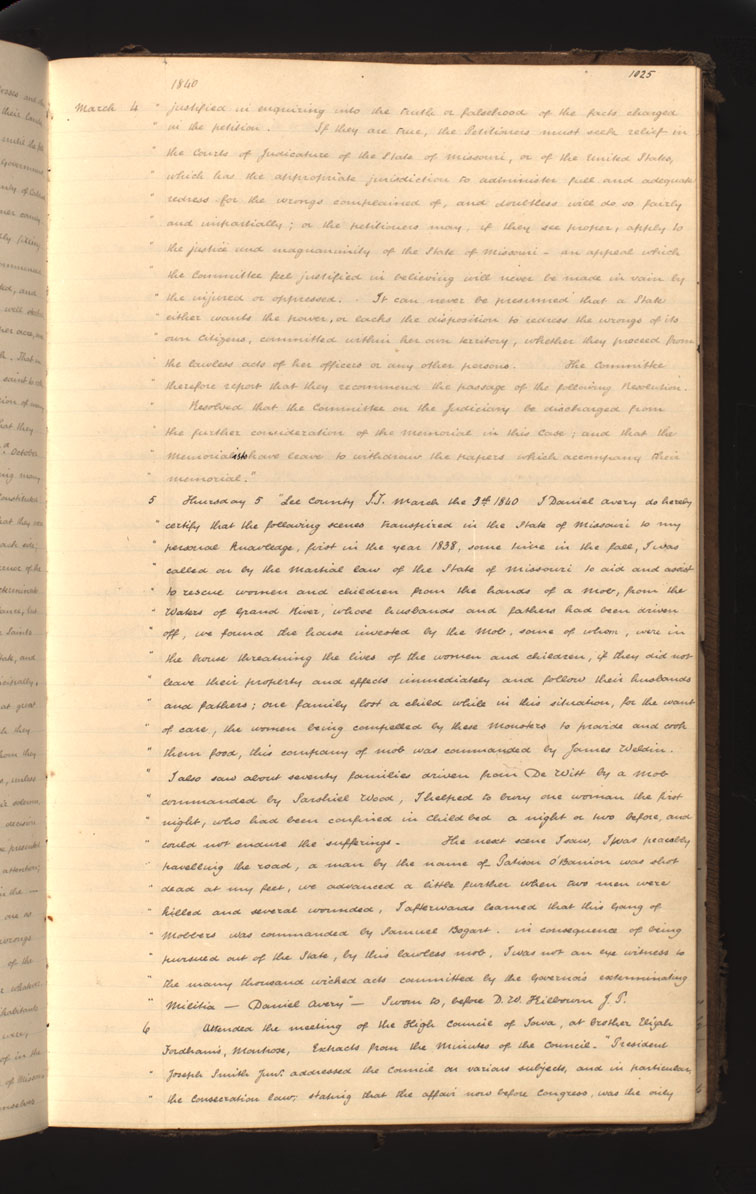 1025
1840
March 4 " justified in enquiring into the truth or falsehood of the facts charged
" in the petition. If they are true, the petitioners must seek relief in
" the Courts of Judicature of the State of Missouri, or of the United States,
" which has the appropriate jurisdiction to administer full and adequate
" redress for the wrongs complained of, and doubtless will do so fairly
" and impartially; or the petitioners may, if they see proper, apply to
" the justice and magnanimity of the State of Missouri - an appeal which
" the Committee feel justified in believing will never be made in vain by
" the injured or oppressed. It can never be presumed that a State
" either wants the power, or lacks the disposition to redress the wrongs of its
" own citizens, committed within her own territory, whether they proceed from
" the lawless acts of her officers or any other persons. The Committee
" therefore report that they recommend the passage of the following Resolution.
" Resolved that the Committee on the Judiciary be discharged from
" the further consideration of the memorial in this case; and that the
" memorialists have leave to withdraw the papers which accompany their
" memorial."
5 Thursday 5 "Lee County I.T. March the 3th 1840 I Daniel Avery do hereby
" certify that the following scenes transpired in the State of Missouri to my
" personal knowledge, first in the year 1838, some time in the fall, I was
" called on by the Martial law of the State of Missouri to aid and assist
" to rescue women and children from the hands of a Mob, from the
" Waters of Grand River, whose husbands and fathers had been driven
" off, we found the house invested by the Mob, some of whom, were in
" the house threatning the lives of the women and children, if they did not
" leave their property and effects immediately and follow their husbands
" and fathers; one family lost a child while in this situation, for the want
" of care, the women being compelled by these Monsters to provide and cook
" them food, this company of mob was commanded by James Weldin.
" I also saw about seventy families driven from De Witt by a Mob
" commanded by Sarshiel Wood, I helped to bury one woman the first
" night, who had been confined in child bed a night or two before, and
" could not endure the sufferings - The next scene I saw, I was peacably
" travelling the road, a man by the name of Patison O'Banion was shot
" dead at my feet, we advanced a little further when two men were
" killed and several wounded, I afterwards learned that this Gang of
" Mobbers was commanded by Samuel Bogart. in consequence of being
" pursued out of the State, by this lawless mob, I was not an eye witness to
" the many thousand wicked acts committed by the Governor's exterminating
" Militia — Daniel Avery" — Sworn to, before D. W. Kilbourn J. P.
6 Attended the meeting of the High Council of Iowa, at brother Elijah
Fordham's, Montrose, Extracts from the Minutes of the Council - "President
" Joseph Smith Junr. addressed the Council on various subjects, and in particular,
" the Consecration law; stating that the affair now before Congress, was the only